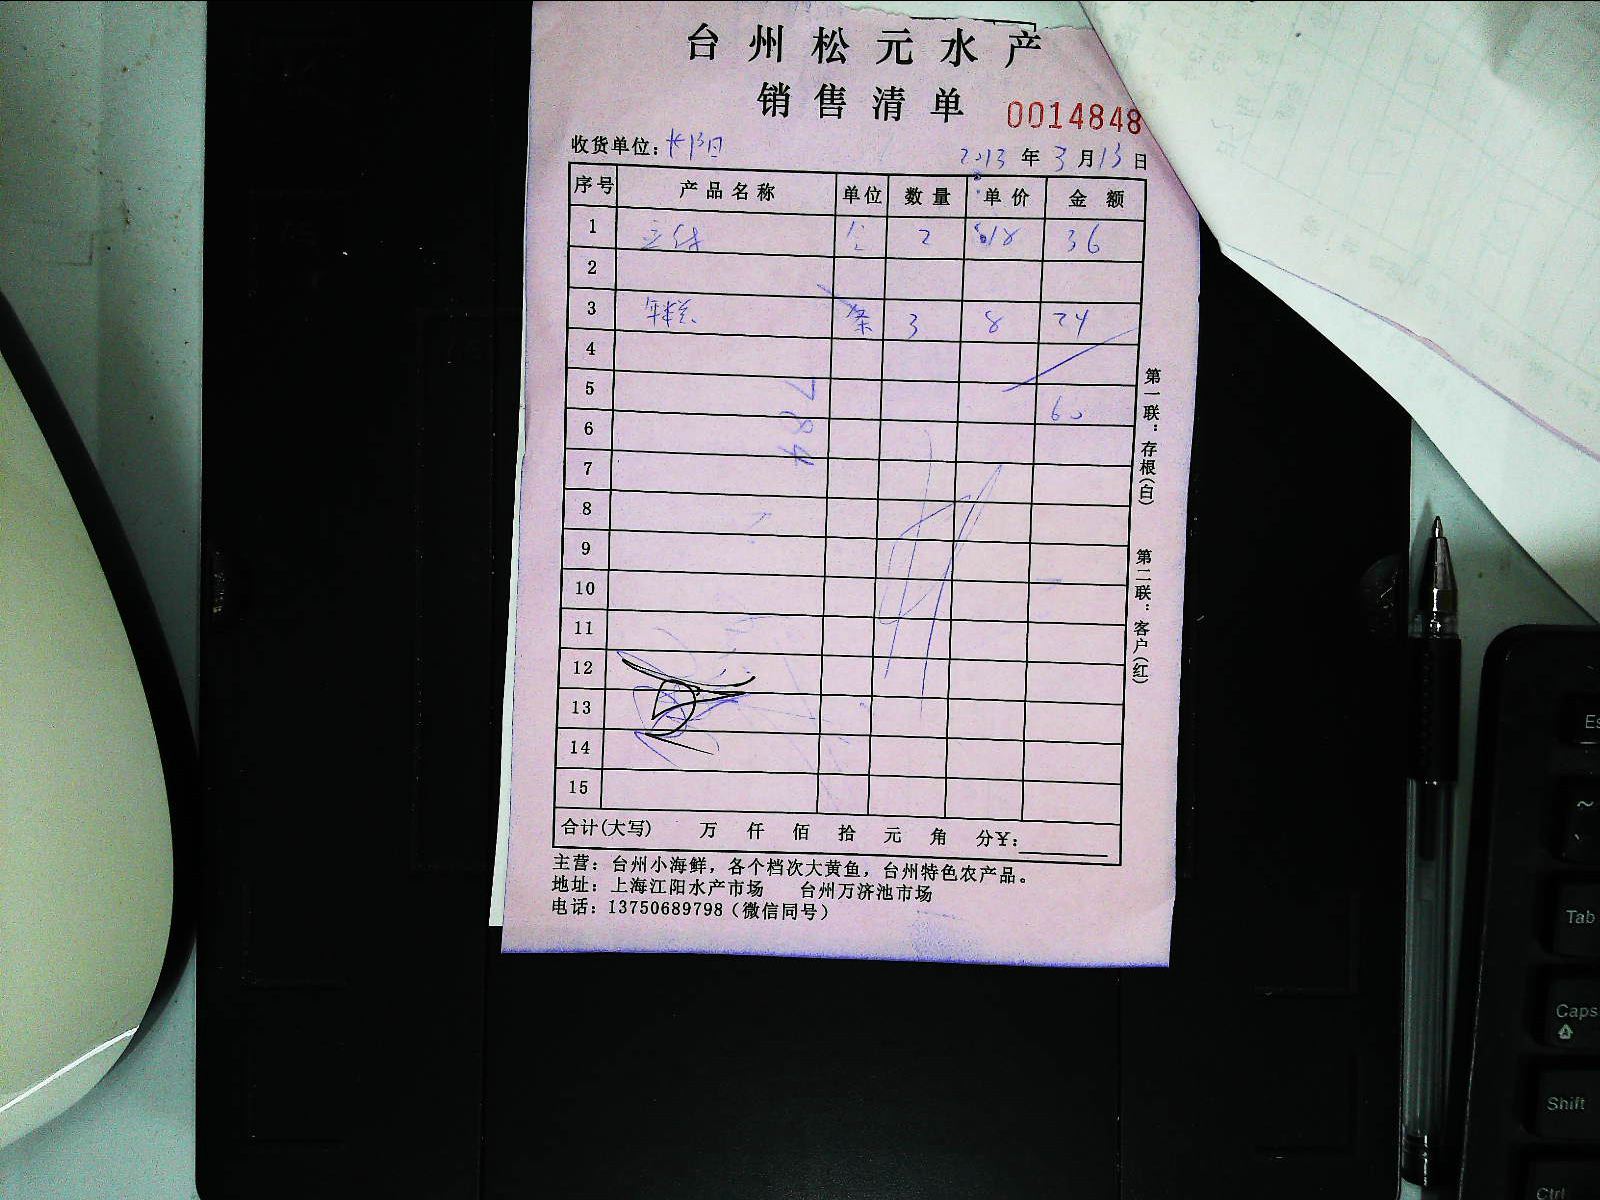 台州松元水产
销售清单 0014848
收货单位: 2013年3月13日
序号 产品名称 单位 数量 单价 金额
1 2 18 36
2
3 年糕 条 3 8 24
4
5 60
6
7
8
9
10
11
12
13
14
15
784
合计(大写) 万 仟 佰 拾 元 角 分¥:
主营: 台州小海鲜, 各个档次大黄鱼, 台州特色农产品。
地址: 上海江阳水产市场 台州万济池市场
电话: 13750689798 (微信同号)
第一联: 存根(白)
第二联: 客户(红)
Es
~
Tab
Caps
Shift
Ctrl